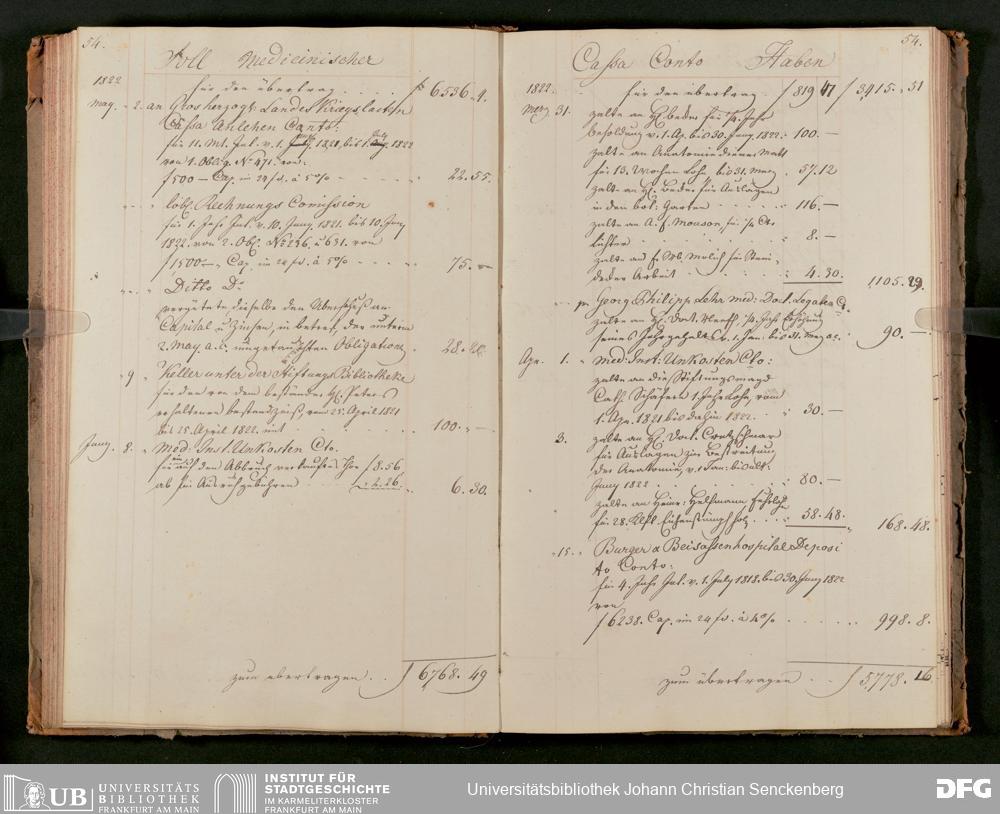 54.
Soll Medicinischer
1822
für den übertrag f 6536. 4.
May. 2. an Grosherzogl. Landes Kriegskosten
Cassa Anlehen Canto:
für 11. Mt. Int. v. 1. 1821, bis 1. 1822
von 1. Oblig. No 471. von:
f 500 – Cap. im 24 fs. à 5% 22. 55.
löbl. Rechnungs Comission
für 1. Jahr Int. v. 10. Juny 1821. bis 10. Juny
1822. von 2. Obl. No 236. u 631. von
f 1,500 –, Cap. im 24 fs. à 5% 75. –
Ditto Do
vergütete dieselbe den Überschuß an
Capital u Zinsen, in betref, der unterm
2. May. a. c. umgetauschten Obligation 28.
9 Keller unter der Stiftungs Bibliotheke
für den von dem beständer H. Peters
erhaltenen bestandzinß, vom 25. April 1821
bis 25. April 1822. mit 100. –
Juny. 8. Med: Inst. Unkosten Cto.
für auf den Abbruch verkauftes f 8. 56
ab für Ausrufgebühren 2. 26. 6. 30.
zum übertragen f 6768. 49
54.
Cassa Conto Haben
1822. für den übertrag f 819 47 f 3,415. 51
Merz 31. zalte an H. Beder für 1/4 Jahr
besoldung v. 1. Ap. bis 30. Juny 1822. 100. –
zalte an Anatomiediener Matt
für 13. Wochen Lohn bis 31. Merz 57. 12
zalte an H. Beder für Auslagen
in den bot: Garten 116. –
zalte an A. f. Mouson, für 1/4 Cto.
Lichter 8. –
zalte an f. Wb. Molich für
Arbeit 4. 30. 1,105. 29.
pr Georg Philipp Lehr med: Doct. Legaten C.
zalte an H. Doct. 1/4 Jahr Erhöhung
seines Jahrgehalts v. 1. Jan. bis 31. Merz a. c. 90. –
Apr. 1. Med: Inst: Unkosten Cto:
zalte an die Stiftungsmagd
Cath. Schäfer 1. Jahr Lohn, vom
1. Apr. 1821 bis dahin 1822. 30. –
3. zalte an H. Doct. Cretzschmar
für Auslagen zur Bestreitung
der Anatomie, v. 1. Jan: bis ult.
Juny 1822 80. –
zalte an Heinr: Helfmann
für 28. Holz 58. 48. 168. 48.
15. Burger & Beisassenhospital Deposi
to Conto:
für 4. Jahr Int. v. 1. July 1818. bis 30. Juny 1822
von
f 6238. Cap. im 24 fs. à 4% 998. 8.
zum übertragen f 5,778. 16
UB UNIVERSITÄTS
BIBLIOTHEK
FRANKFURT AM MAIN
INSTITUT FÜR
STADTGESCHICHTE
IM KARMELITERKLOSTER
FRANKFURT AM MAIN
Universitätsbibliothek Johann Christian Senckenberg
DFG